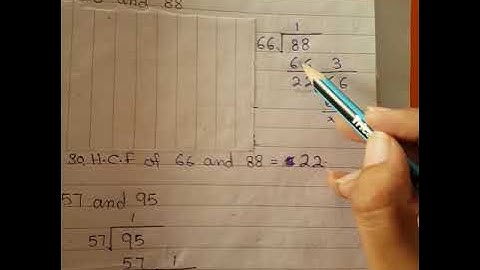 and 88
1
66 88
3
22 66
x
So, H.C.F of 66 and 88 = 22.
57 and 95
1
57 95
57 1